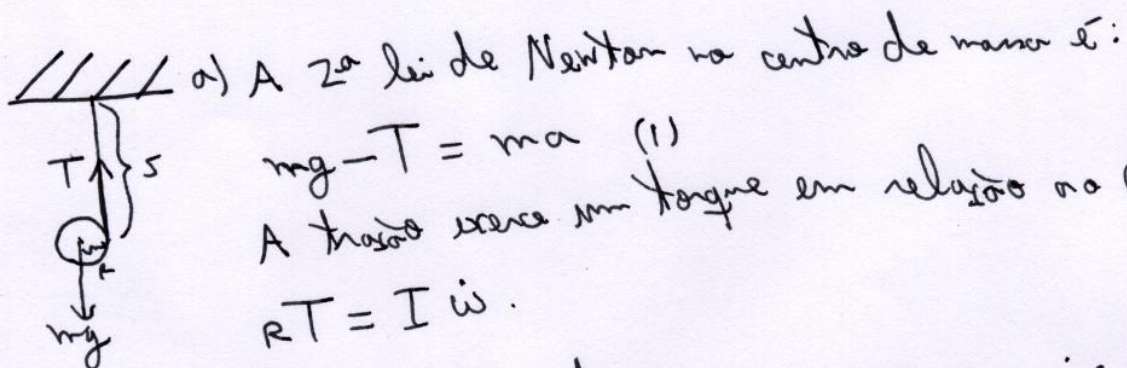 a) A 2ª lei de Newton no centro de massa é:
mg - T = ma (1)
T
s
A tração exerce um torque em relação ao
RT = I ω̇.
mg